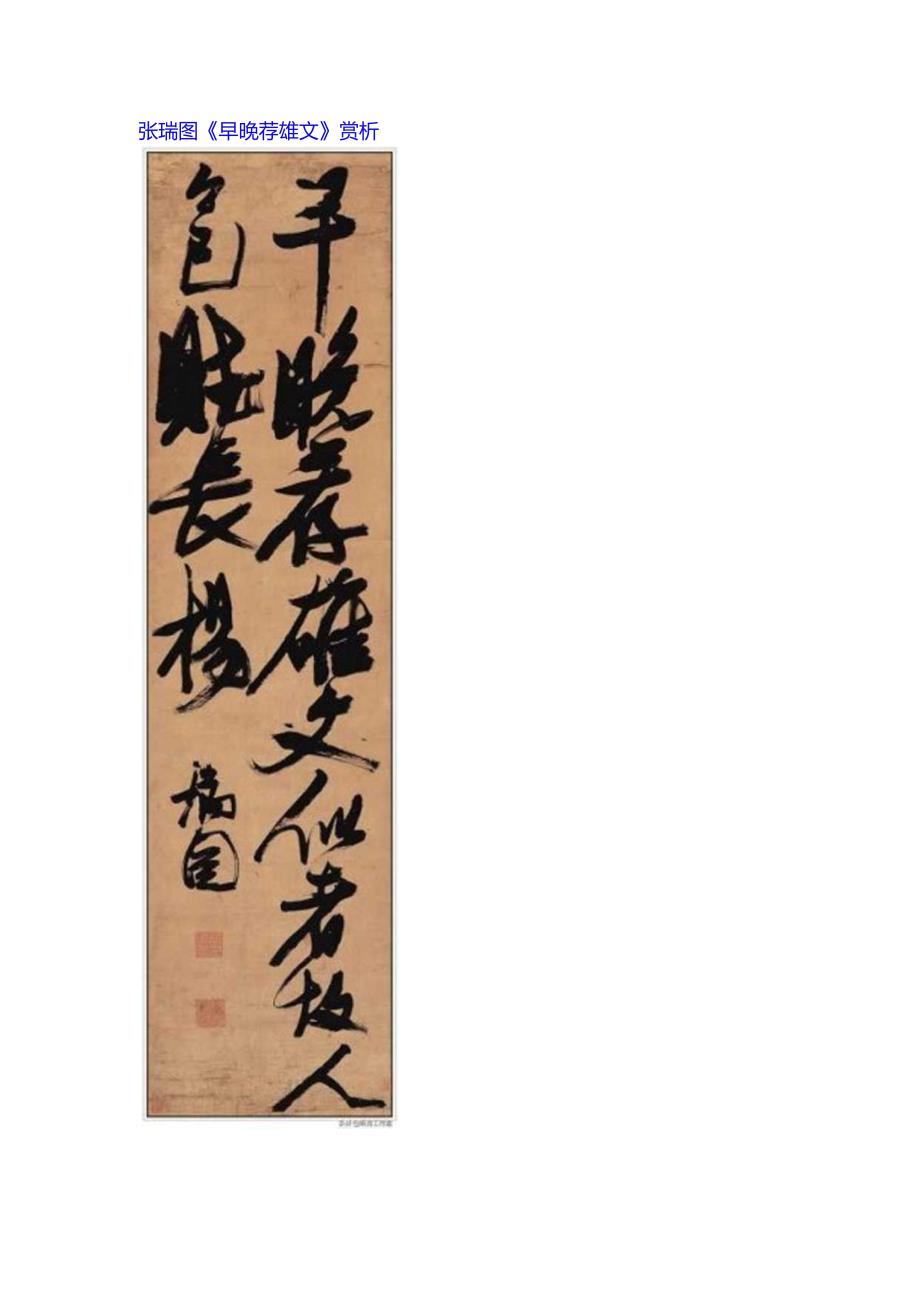 张瑞图《早晚荐雄文》赏析
早晚荐雄文似者故人
今已賦長楊
瑞圖